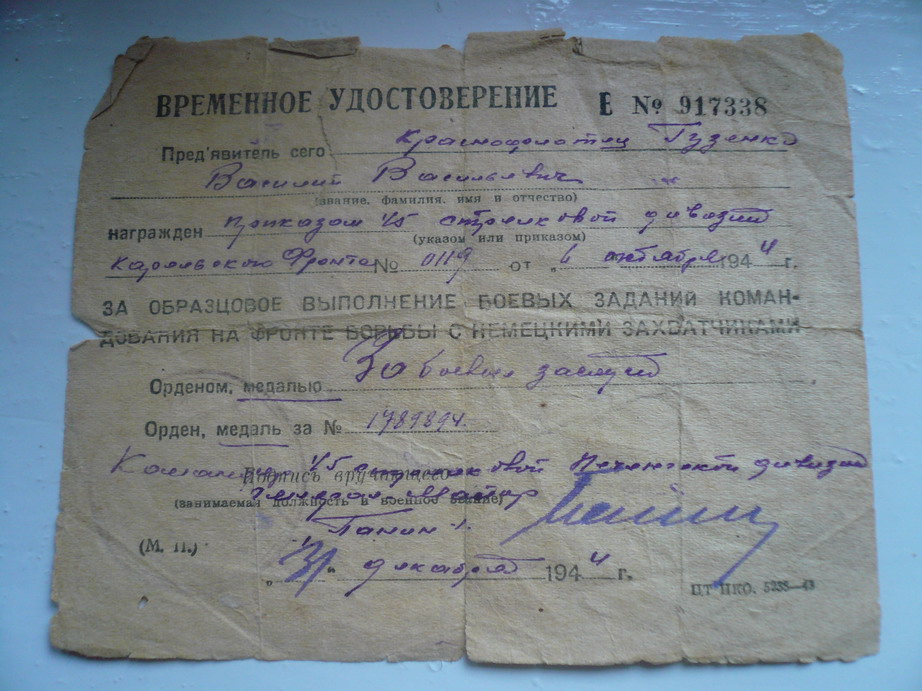 ВРЕМЕННОЕ УДОСТОВЕРЕНИЕ Е № 917338
Пред'явитель сего Краснофлотец Гузенко
Василий Васильевич
(звание, фамилия, имя и отчество)
награжден приказом 45 стрелковой дивизии
(указом или приказом)
Карельского Фронта № 0119 от „6 октября 1944 г.
ЗА ОБРАЗЦОВОЕ ВЫПОЛНЕНИЕ БОЕВЫХ ЗАДАНИЙ КОМАН-
ДОВАНИЯ НА ФРОНТЕ БОРЬБЫ С НЕМЕЦКИМИ ЗАХВАТЧИКАМИ
Орденом, медалью За боевые заслуги
Орден, медаль за № 1789894.
Командир 45 стрелковой Печенгской дивизии
Подпись вручающего
генерал-майор
(занимаемая должность и военное звание)
Панин
(М. П.)
„31" декабря 1944 г.
ЦТ НКО. 5238—43